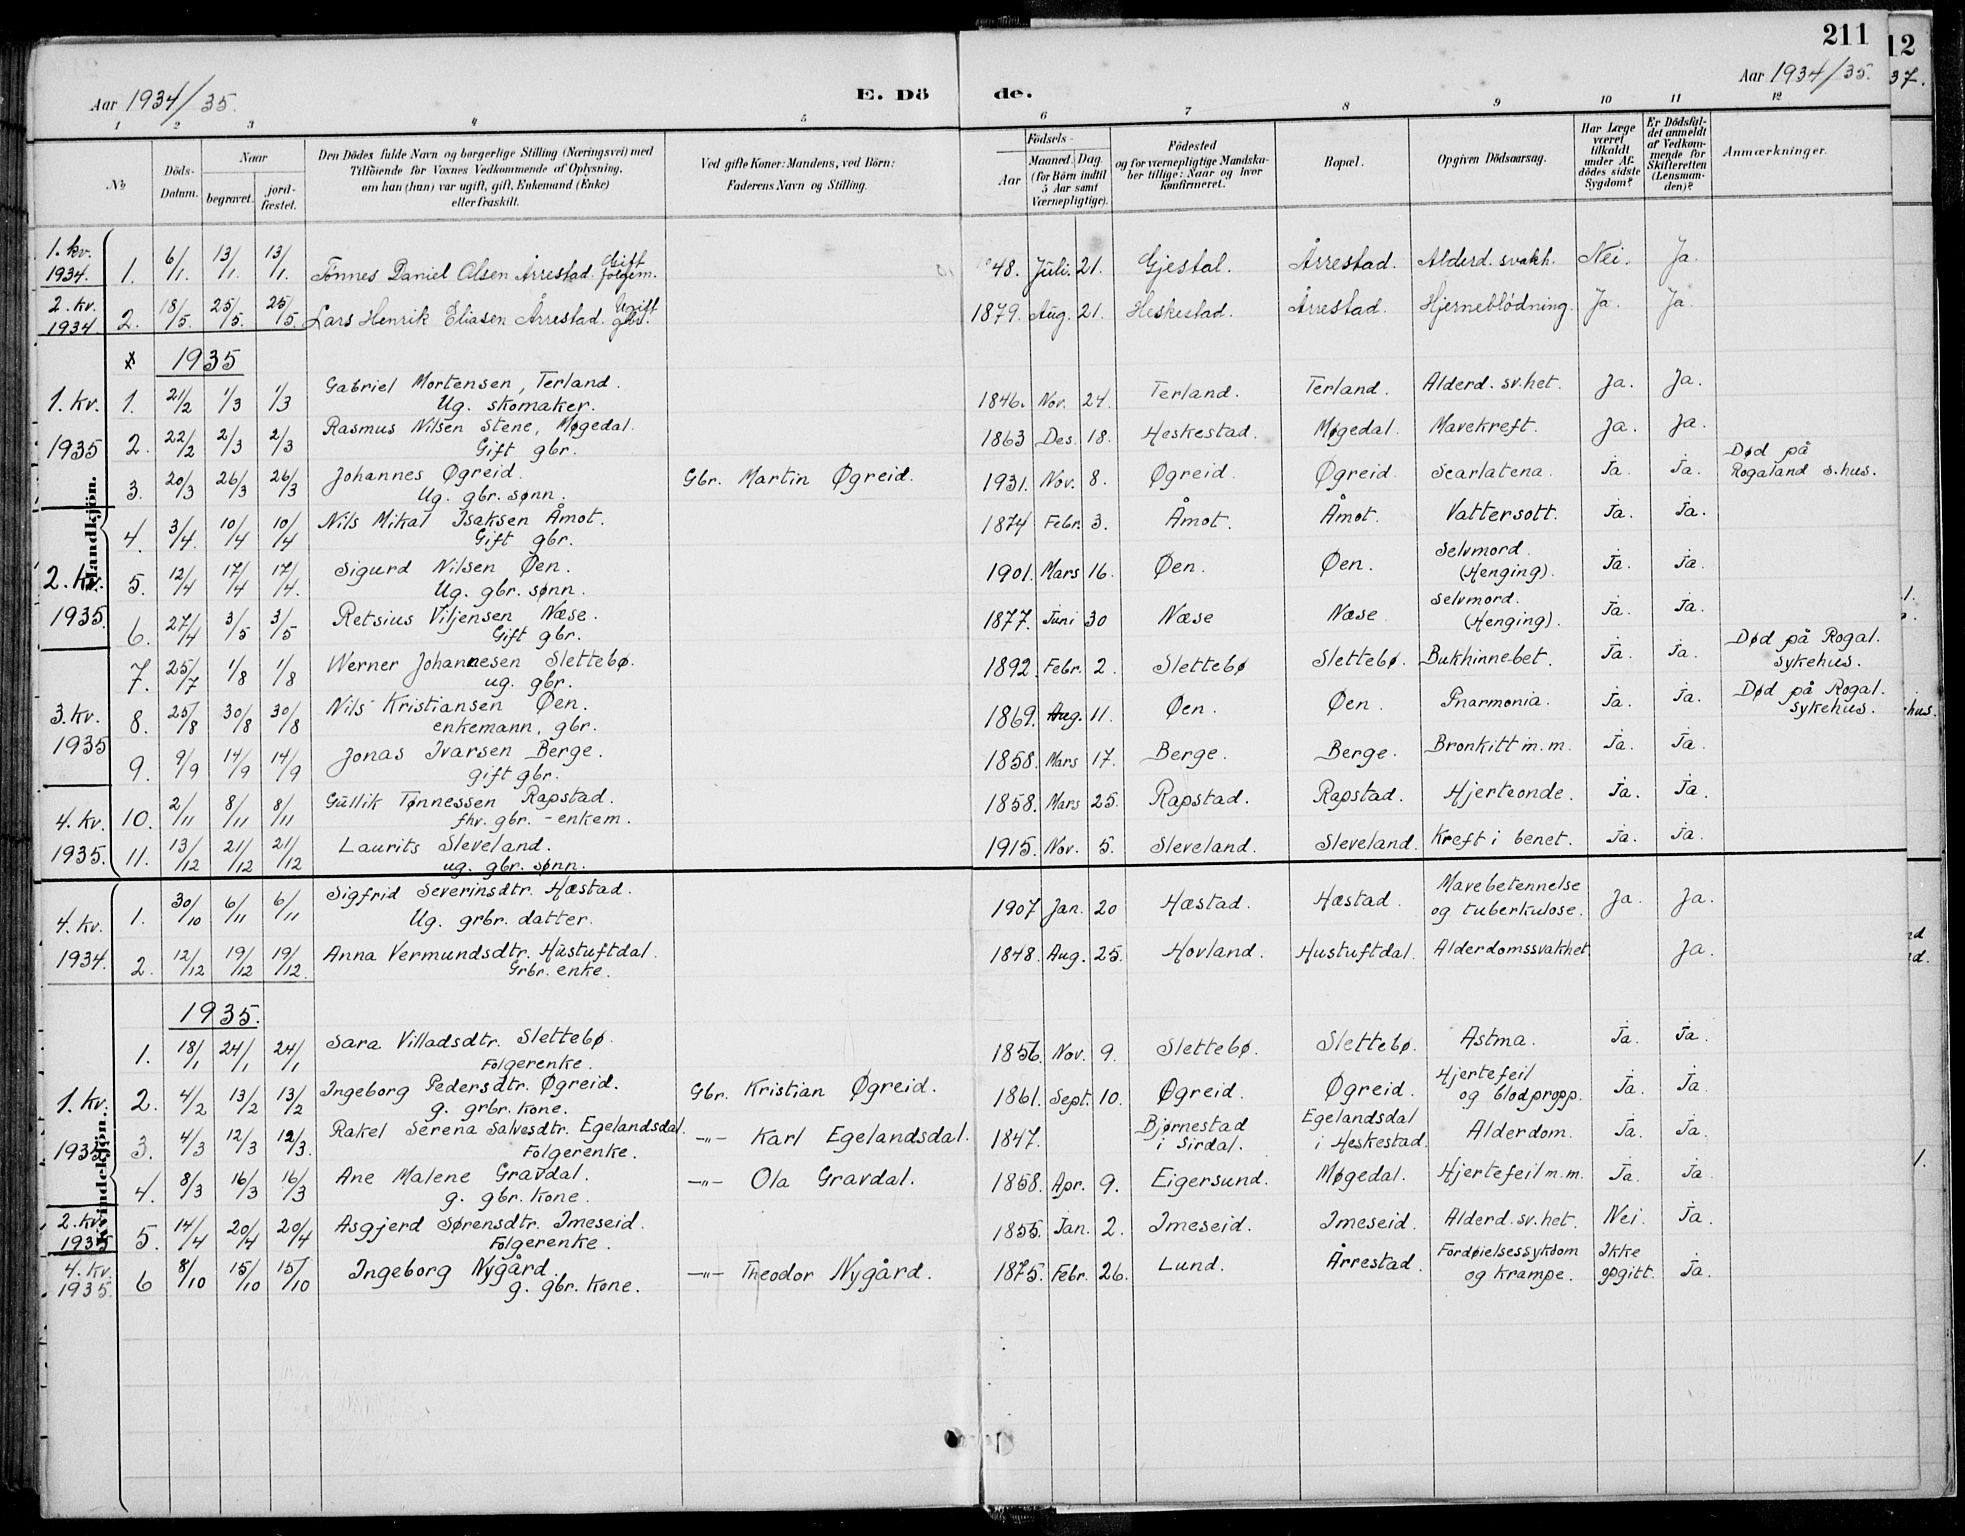 211
12
37.
Aar 1934/35.
E. Dö de.
Aar 1934/35.
1 2 3 4 5 6 7 8 9 10 11 12
No
Döds-Datum.
Naar
begravet.
jord-fæstet.
Den Dödes fulde Navn og borgerlige Stilling (Næringsvei) med
Tilföiende for Voxnes Vedkommende af Oplysning,
om han (hun) var ugift, gift, Enkemand (Enke)
eller fraskilt.
Ved gifte Koner: Mandens, ved Börn:
Faderens Navn og Stilling.
Födsels-
Aar
Maaned. Dag.
(for Börn indtil
5 Aar samt
Værnepligtige).
Födested
og for værnepligtige Mandska-
ber tillige: Naar og hvor
konfirmeret.
Bopæl.
Opgiven Dödsaarsag.
Har Læge
været
tilkaldt
under Af-
dödes sidste
Sygdom?
Er Dödsfal-
det anmeldt
af Vedkom-
mende for
Skifteretten
(Lensman-
den)?
Anmærkninger.
Mandkjön.
1. kv. 1934. 1. 6/1. 13/1. 13/1. Tönnes Daniel Olsen Årrestad. Gift folgem. 48. Juli. 21. Gjestal. Årrestad. Alderd. svakh. Nei. Ja.
2. kv. 1934. 2. 18/5. 25/5. 25/5. Lars Henrik Eliasen Årrestad. Ugift gbr. 1879. Aug. 21. Heskestad. Årrestad. Hjerneblödning. Ja. Ja.
1935
1. kv. 1. 21/2 1/3 1/3 Gabriel Mortensen, Terland. 1846. Nov. 24. Terland. Terland. Alderd. sv.het. Ja. Ja.
Ug. skomaker.
1935 2. 22/2 2/3 2/3 Rasmus Nilsen Stene, Møgedal. 1863 Des. 18. Heskestad. Møgedal. Mavekreft. Ja. Ja.
Gift gbr.
3. 20/3 26/3 26/3 Johannes Øgreid. Gbr. Martin Øgreid. 1931. Nov. 8. Øgreid. Øgreid. Scarlatena. Ja. Ja. Død på
Ug. gbr. sønn. Rogaland s.hus.
4. 3/4. 10/4 10/4 Nils Mikal Isaksen Åmot. 1874 Febr. 3. Åmot. Åmot. Vattersott. Ja. Ja.
Gift gbr.
2. kv. 5. 12/4 17/4 17/4. Sigurd Nilsen Øen. 1901. Mars 16. Øen. Øen. Selvmord. Ja. Ja.
Ug. gbr. sønn. (Henging).
1935. 6. 27/4 3/5 3/5 Retsius Viljensen Næse. 1877. Juni 30 Næse Næse Selvmord. Ja. Ja.
Gift gbr. (Henging).
7. 25/7 1/8 1/8 Werner Johannesen Slettebø. 1892. Febr. 2. Slettebø Slettebø. Bukhinnebet. Ja. Ja. Død på Rogal.
ug. gbr. sykehus.
3. kv. 1935 8. 25/8 30/8 30/8 Nils Kristiansen Øen. 1869. Aug. 11. Øen. Øen. Pnarmonia. Ja. Ja. Død på Rogal.
enkemann, gbr. sykehus.
9. 9/9 14/9 14/9 Jonas Ivarsen Berge. 1858. Mars 17. Berge. Berge. Bronkitt m.m. Ja. Ja.
gift gbr.
4. kv. 10. 2/11 8/11 8/11 Gullik Tønnessen Rapstad. 1858. Mars 25. Rapstad. Rapstad. Hjerteonde. Ja. Ja.
fhv. gbr. - enkem.
1935. 11. 13/12 21/12 21/12 Laurits Sleveland. 1915. Nov. 5. Sleveland. Sleveland. Kreft i benet. Ja. Ja.
ug. gbr. sønn.
Kvindekjön.
4. kv. 1. 30/10 6/11 6/11 Sigfrid Severinsdtr. Hæstad. 1907 Jan. 20 Hæstad. Hæstad. Mavebetennelse Ja. Ja.
Ug. grbr. datter. og tuberkulose.
1934. 2. 12/12 19/12 19/12. Anna Vermundsdtr. Hustuftdal. 1848. Aug. 25. Hovland. Hustuftdal. Alderdomssvakhet Ja.
Grbr. enke.
1935.
1. 18/1 24/1 24/1 Sara Villadsdtr. Slettebø. 1856. Nov. 9. Slettebø. Slettebø. Astma. Ja. Ja.
Folgerenke.
1. kv. 2. 4/2 13/2 13/2 Ingeborg Pedersdtr. Øgreid. Gbr. Kristian Øgreid. 1861. Sept. 10. Øgreid. Øgreid. Hjertefeil Ja. Ja.
g. grbr. kone. og blodpropp.
1935. 3. 4/3 12/3 12/3. Rakel Serena Salvesdtr. Egelandsdal. -"- Karl Egelandsdal. 1847. Bjørnestad Egelandsdal Alderdom. Ja. Ja.
Folgerenke. i Sirdal. i Heskestad.
4. 8/3 16/3 16/3 Ane Malene Gravdal. -"- Ola Gravdal. 1858. Apr. 9. Eigersund. Møgedal. Hjertefeil m.m. Ja. Ja.
g. gbr. kone.
2. kv. 1935 5. 14/4 20/4 20/4 Asgjerd Sørensdtr. Imeseid. 1855. Jan. 2. Imeseid. Imeseid. Alderd. sv.het. Nei. Ja.
Folgerenke.
4. kv. 1935. 6 8/10 15/10 15/10 Ingeborg Nygård. -"- Theodor Nygård. 1875. Febr. 26. Lund. Årrestad. Fordøielsessykdom Ikke Ja.
g. gbr. kone. og krampe. opgitt.